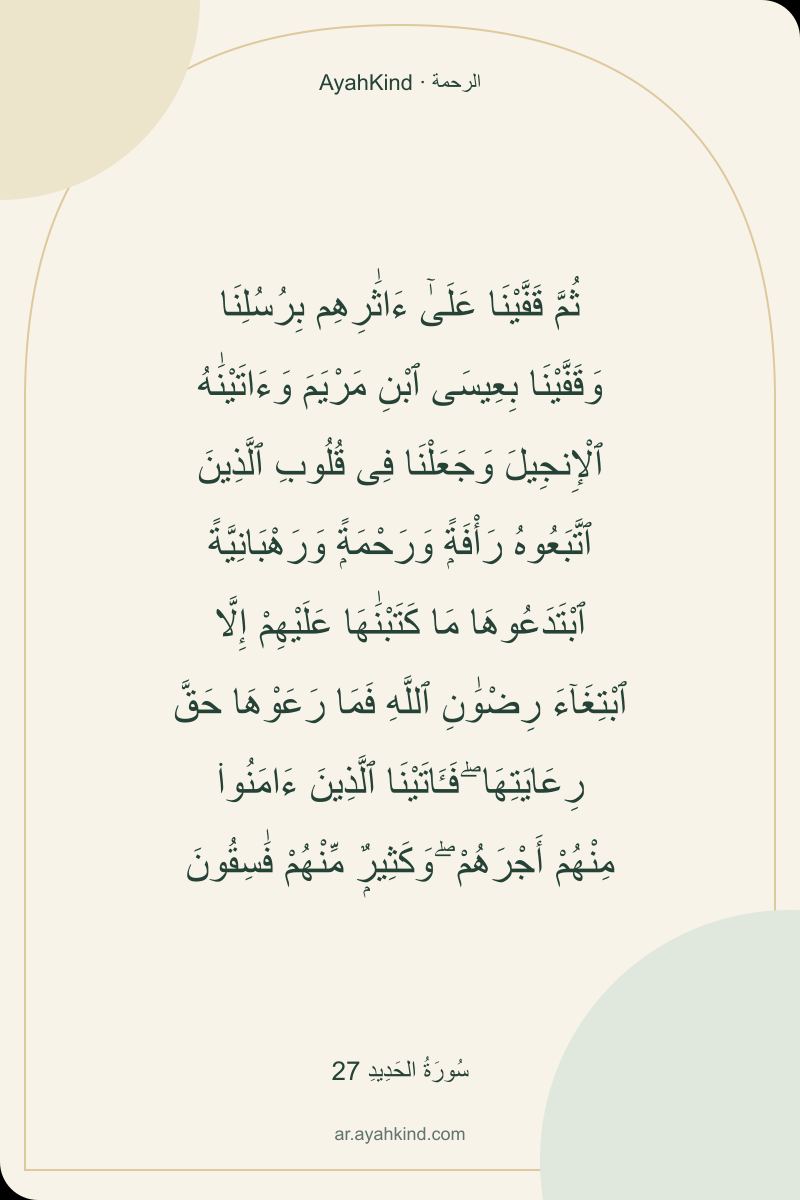 AyahKind · الرحمة
ثُمَّ قَفَّيْنَا عَلَىٰٓ ءَاثَٰرِهِم بِرُسُلِنَا
وَقَفَّيْنَا بِعِيسَى ٱبْنِ مَرْيَمَ وَءَاتَيْنَٰهُ
ٱلْإِنجِيلَ وَجَعَلْنَا فِى قُلُوبِ ٱلَّذِينَ
ٱتَّبَعُوهُ رَأْفَةًۭ وَرَحْمَةًۭ وَرَهْبَانِيَّةً
ٱبْتَدَعُوهَا مَا كَتَبْنَٰهَا عَلَيْهِمْ إِلَّا
ٱبْتِغَآءَ رِضْوَٰنِ ٱللَّهِ فَمَا رَعَوْهَا حَقَّ
رِعَايَتِهَا ۖ فَـَٔاتَيْنَا ٱلَّذِينَ ءَامَنُوا۟
مِنْهُمْ أَجْرَهُمْ ۖ وَكَثِيرٌۭ مِّنْهُمْ فَٰسِقُونَ
سُورَةُ الحَدِيدِ 27
ar.ayahkind.com